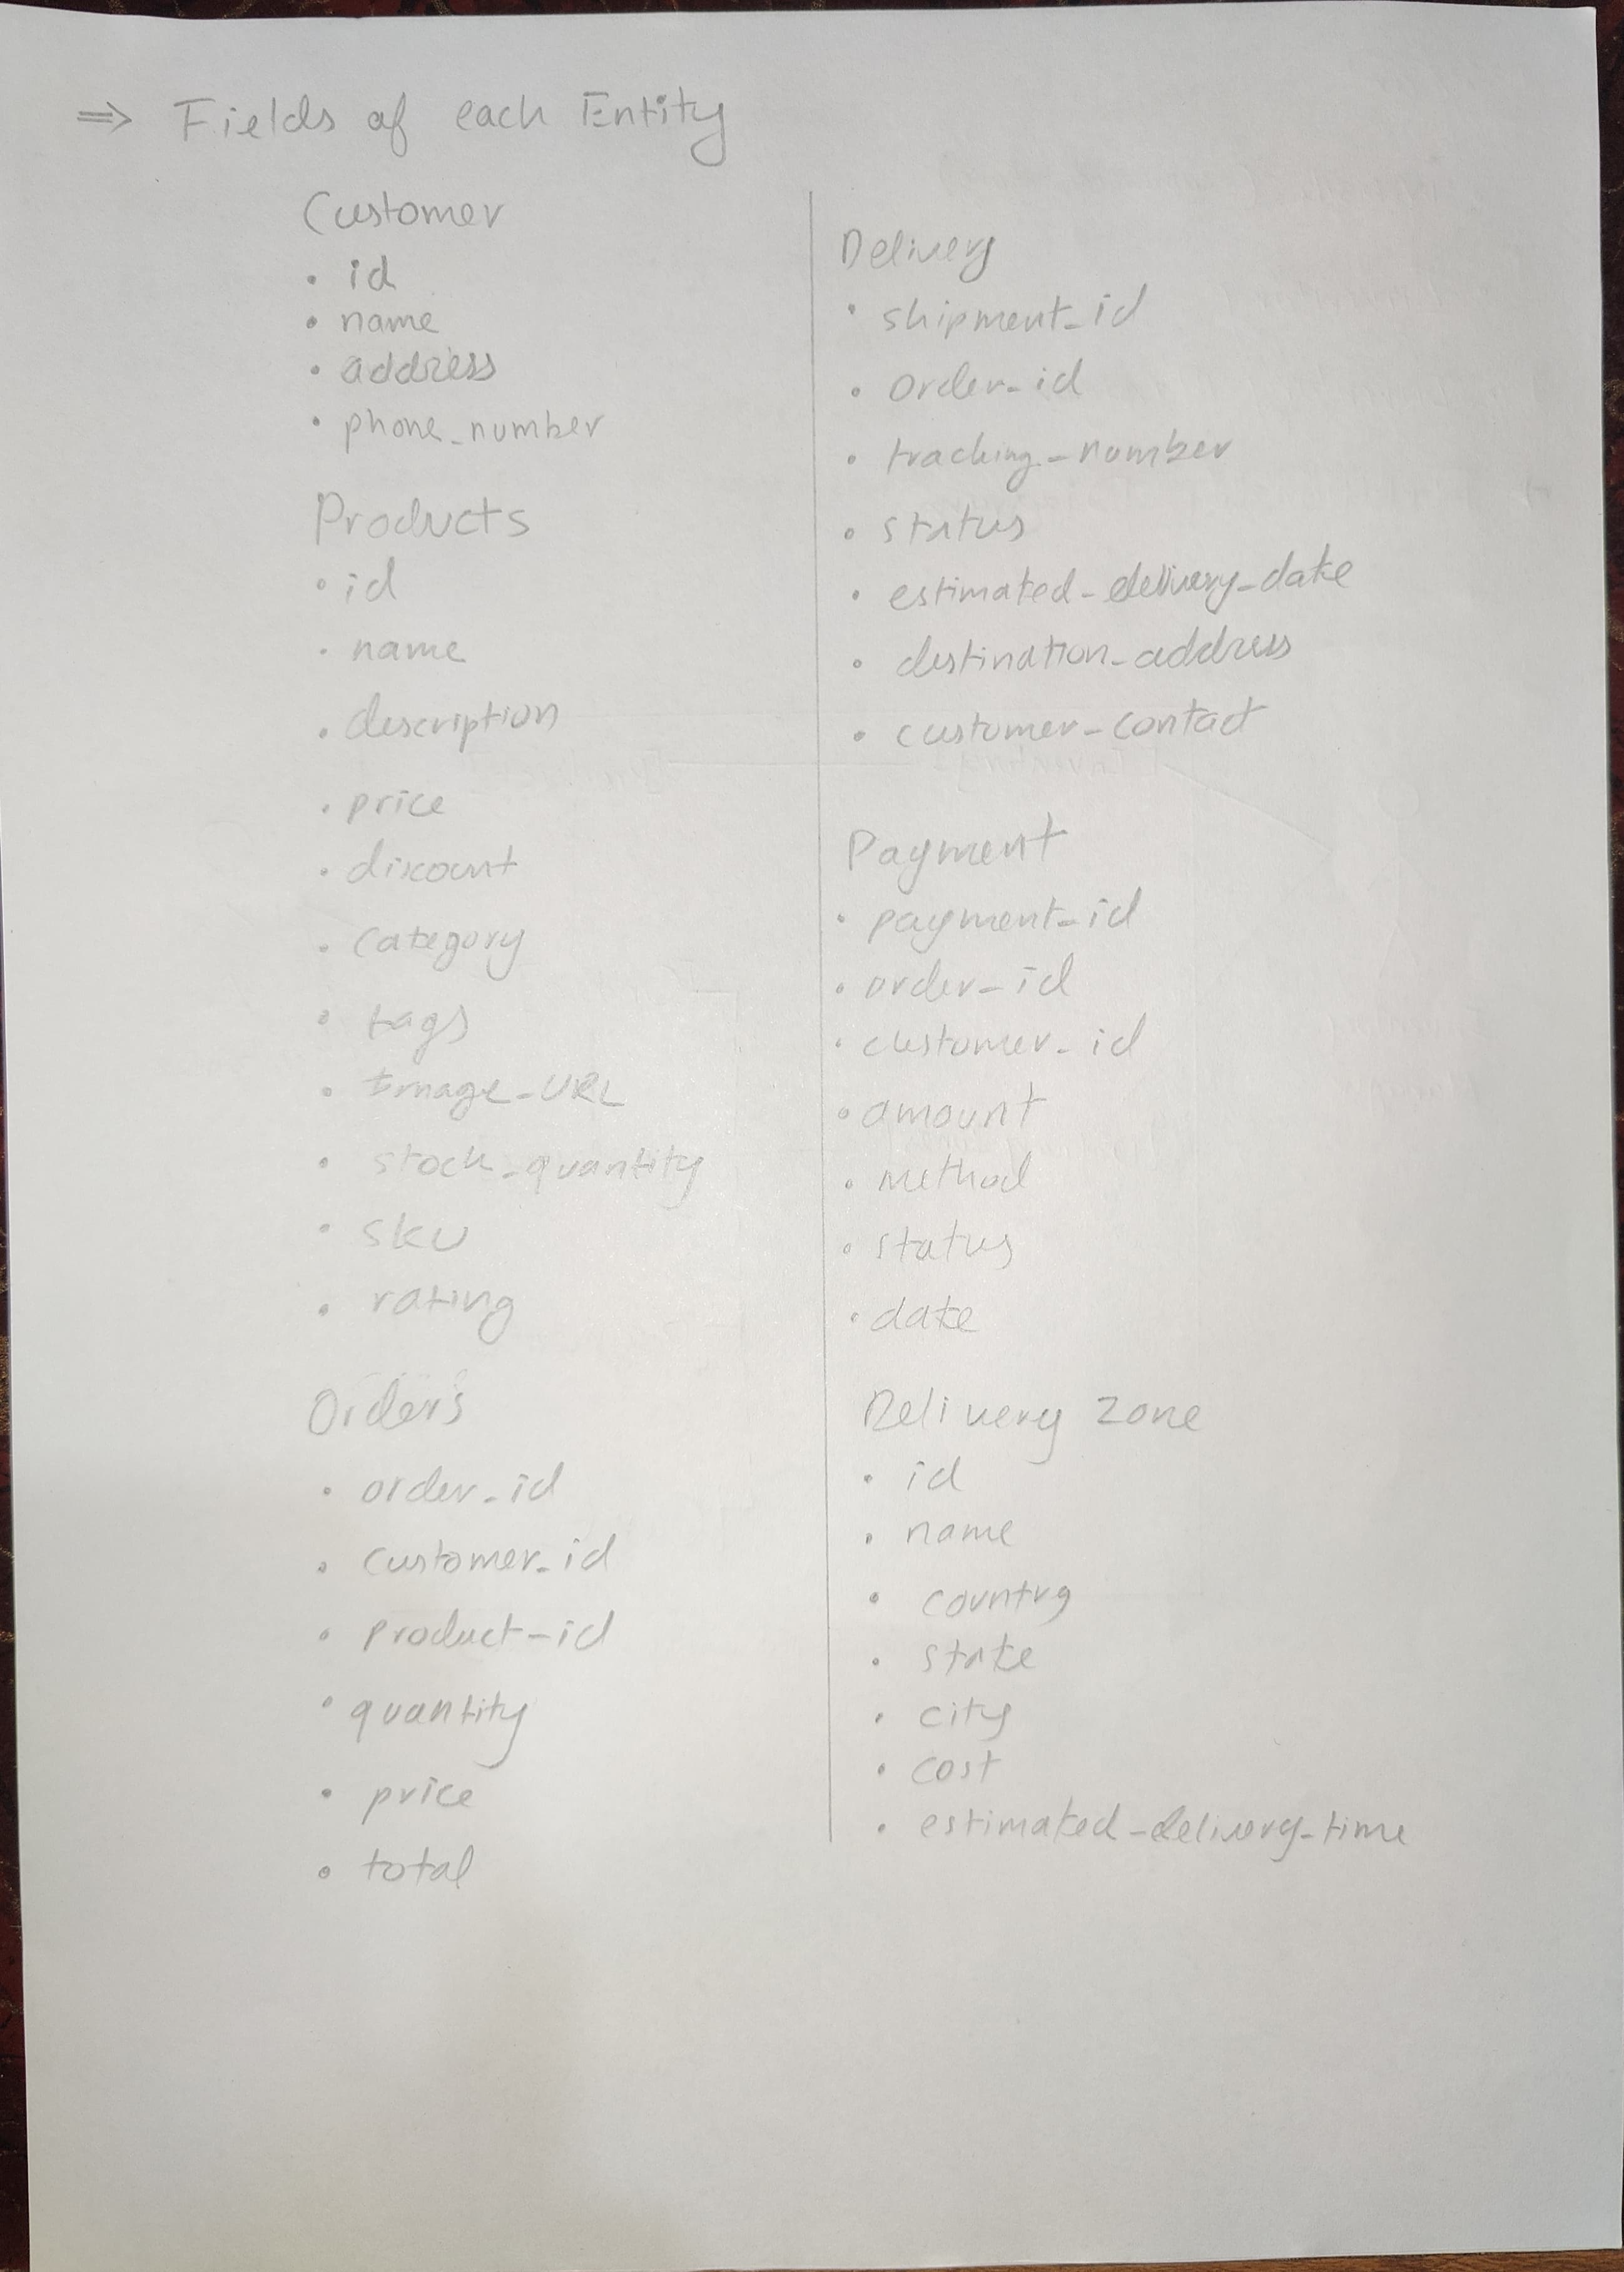 ⇒ Fields of each Entity
Customer
• id
• name
• address
• phone_number
Products
• id
• name
• description
• price
• discount
• category
• tags
• Image_URL
• stock_quantity
• SKU
• rating
Orders
• order_id
• customer_id
• product_id
• quantity
• price
• total
Delivery
• shipment_id
• order_id
• tracking_number
• status
• estimated_delivery_date
• destination_address
• customer_contact
Payment
• payment_id
• order_id
• customer_id
• amount
• method
• status
• date
Delivery Zone
• id
• name
• country
• state
• city
• cost
• estimated_delivery_time